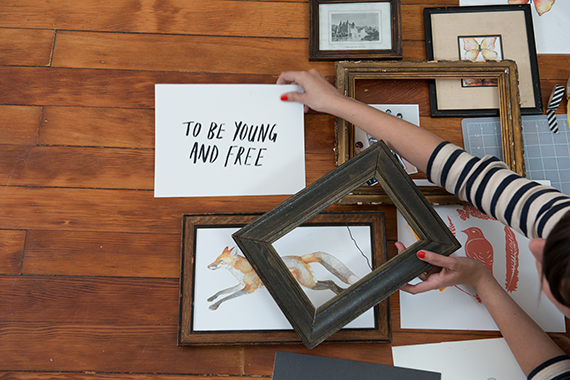 TO BE YOUNG
AND FREE